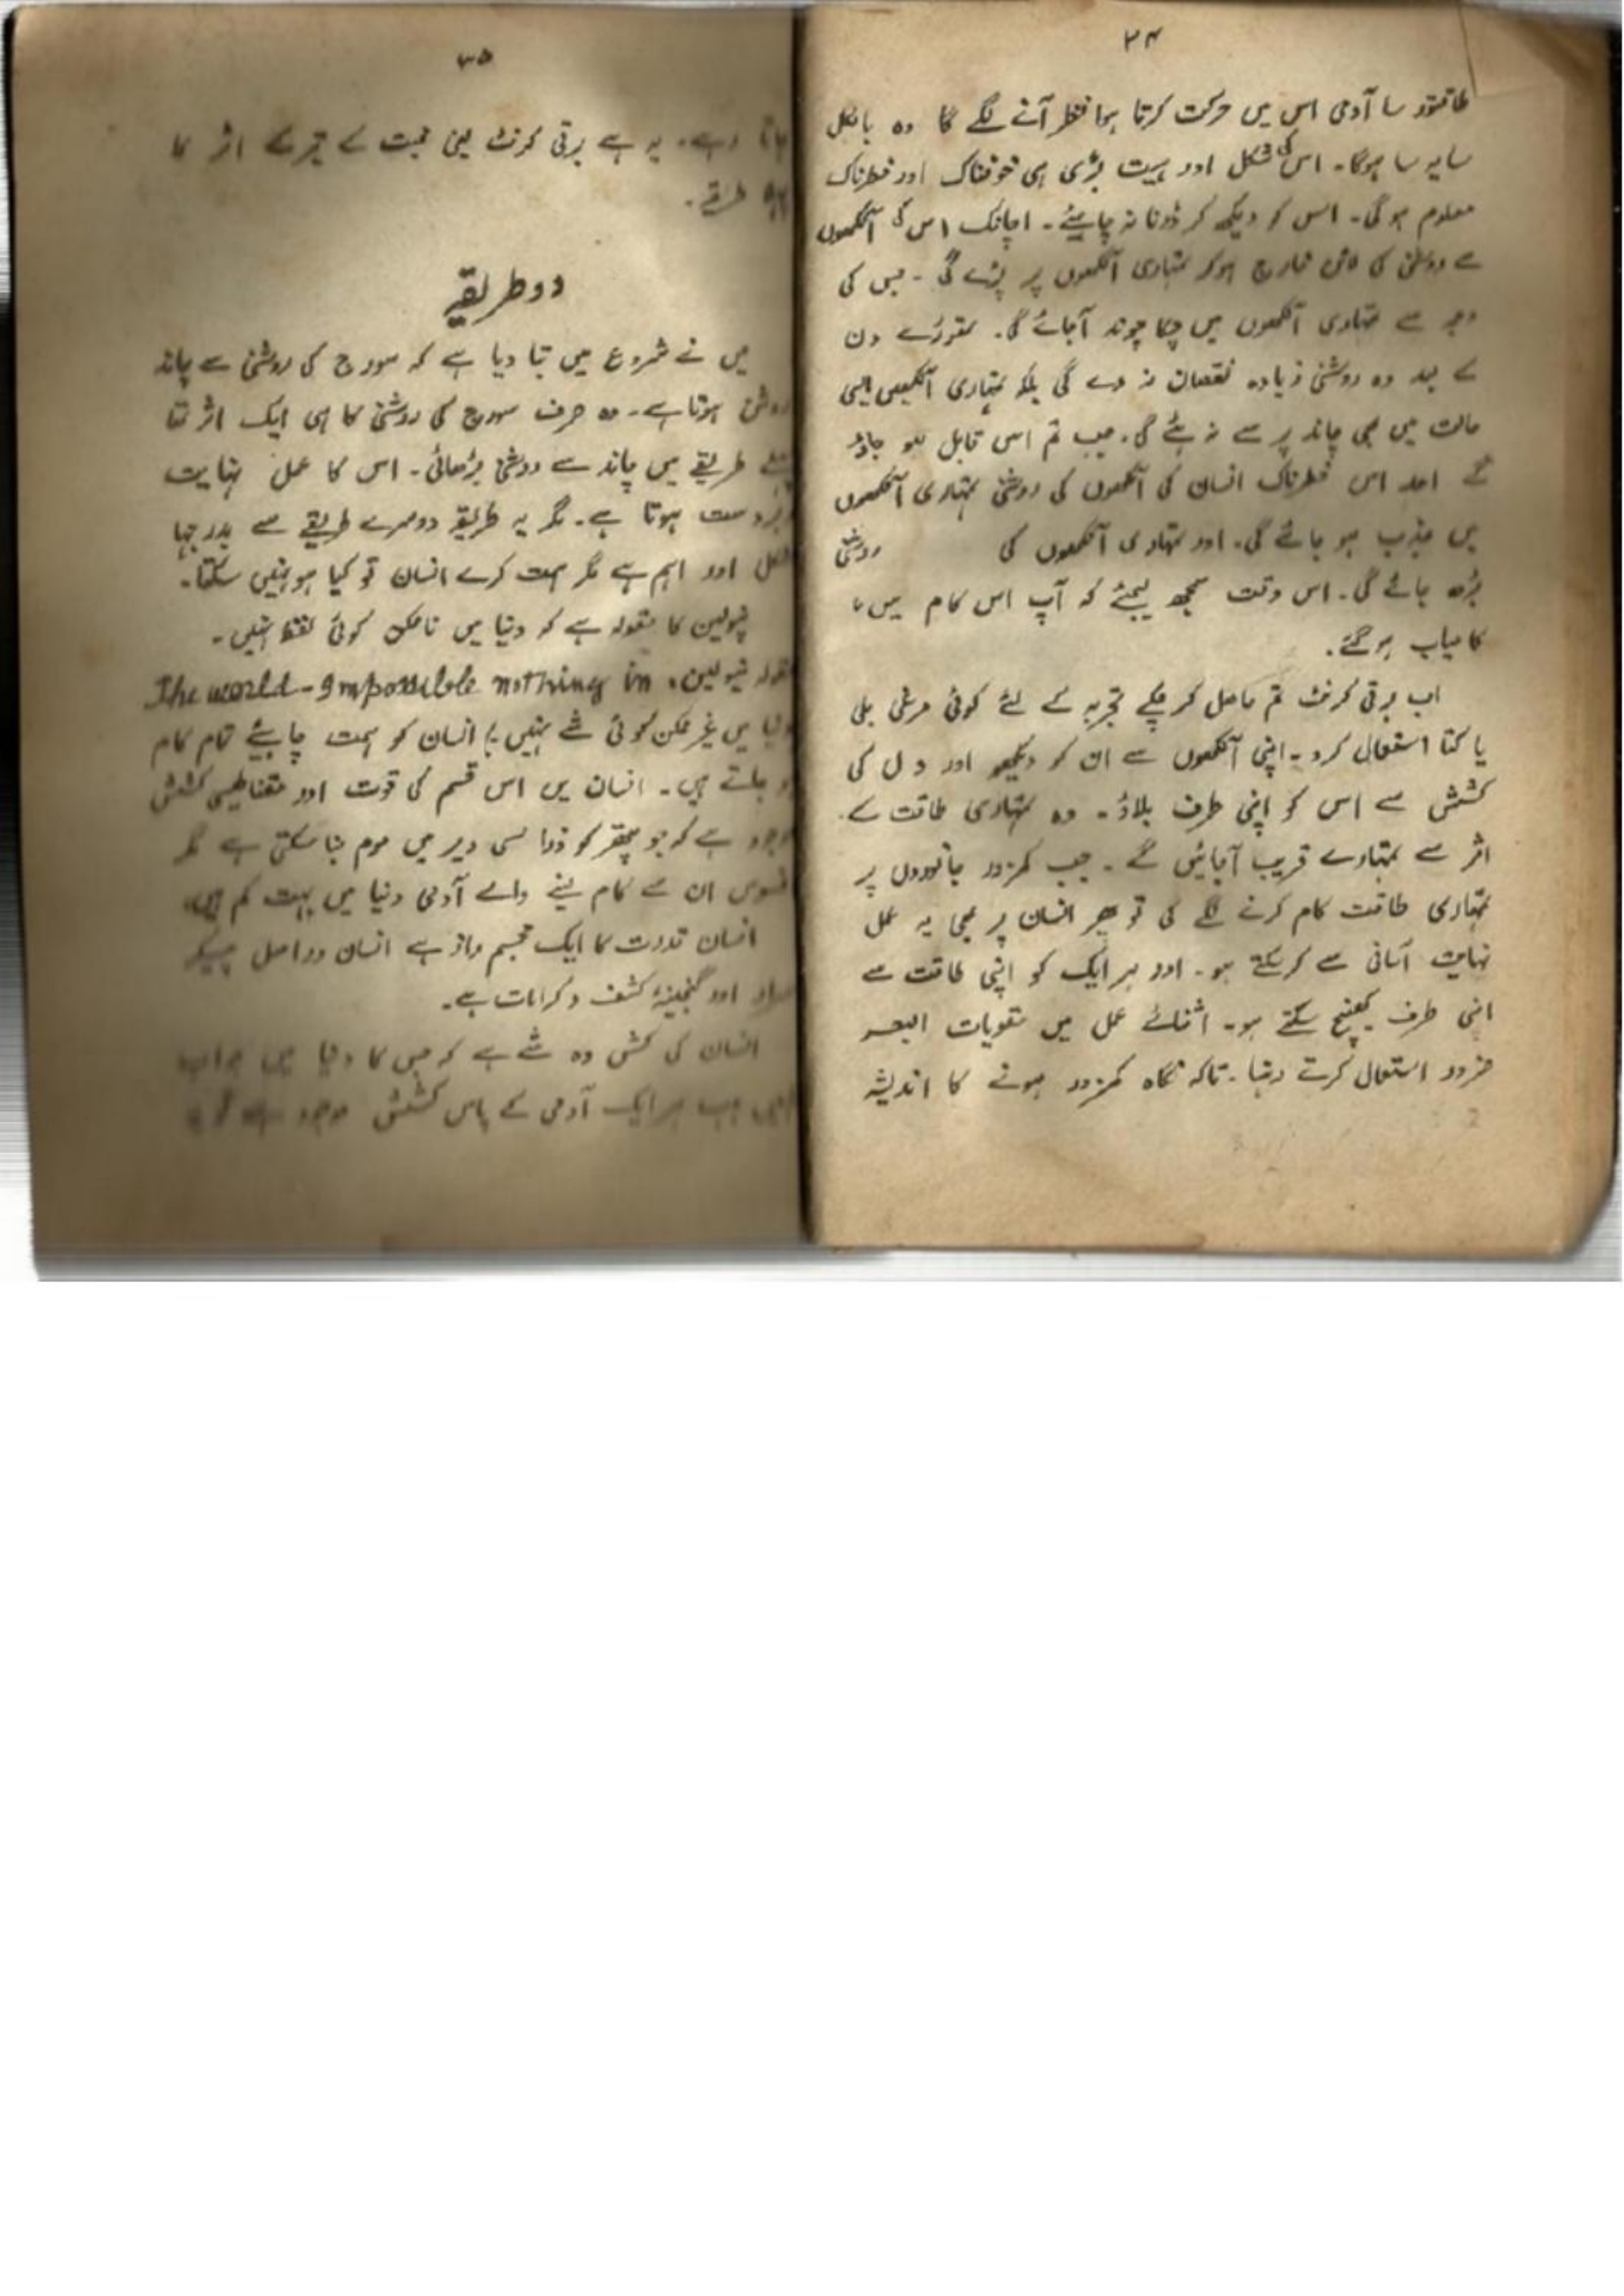 ۳۴
طاقتور سا آدمی اس میں حرکت کرتا ہوا نظر آنے لگے گا وہ بالکل
سایہ سا ہوگا۔ اس کی شکل اور ہیبت بڑی ہی خوفناک اور خطرناک
معلوم ہوگی۔ اس کو دیکھ کر ڈرنا نہ چاہیئے۔ اچانک اس کی آنکھوں
سے روشنی کی خارج ہوکر تمہاری آنکھوں پر پڑے گی۔ جس کی
وجہ سے تمہاری آنکھوں میں چکا چوند آجائے گی۔ تھوڑے دن
کے بعد وہ روشنی زیادہ نقصان نہ دے گی بلکہ تمہاری آنکھیں ایسی
حالت میں بھی چاند پر سے نہ ہٹے گی۔ جب تم اس قابل ہو جاؤ
گے اور اس خطرناک انسان کی آنکھوں کی روشنی تمہاری آنکھوں
میں جذب ہو جائے گی۔ اور تمہاری آنکھوں کی روشنی
بڑھ جائے گی۔ اس وقت سمجھ لیجئے کہ آپ اس کام میں
کامیاب ہوگئے۔
اب برقی کرنٹ تم حاصل کر چکے تجربہ کے لئے کوئی مرغی بلی
یا کتا استعمال کرو۔ اپنی آنکھوں سے ان کو دیکھو اور دل کی
کشش سے اس کو اپنی طرف بلاؤ۔ وہ تمہاری طاقت کے
اثر سے تمہارے قریب آجائیں گے۔ جب کمزور جانوروں پر
تمہاری طاقت کام کرنے لگے گی تو پھر انسان پر بھی یہ عمل
نہایت آسانی سے کرسکتے ہو۔ اور ہر ایک کو اپنی طاقت سے
اپنی طرف کھینچ سکتے ہو۔ اثنائے عمل میں مقویات البصر
ضرور استعمال کرتے رہنا۔ تاکہ نگاہ کمزور ہونے کا اندیشہ
۳۵
جاتا رہے۔ یہ ہے برقی کرنٹ یعنی محبت کے تیرے اثر کا
طریقے۔
دو طریقے
میں نے شروع میں بتا دیا ہے کہ سورج کی روشنی سے چاند
روشن ہوتا ہے۔ وہ صرف سورج کی روشنی کا ہی ایک اثر تھا
طریقے میں چاند سے روشنی بڑھائی۔ اس کا عمل نہایت
زبردست ہوتا ہے۔ مگر یہ طریقہ دوسرے طریقے سے بدرجہا
مشکل اور اہم ہے مگر ہمت کرے انسان تو کیا ہو نہیں سکتا۔
نپولین کا مقولہ ہے کہ دنیا میں ناممکن کوئی لفظ نہیں۔
مقولہ نپولین۔ The world-Impossible nothing in
دنیا میں غیر ممکن کوئی شے نہیں انسان کو ہمت چاہیئے تمام کام
ہو جاتے ہیں۔ انسان میں اس قسم کی قوت اور مقناطیسی کشش
موجود ہے کہ جو پتھر کو ذرا سی دیر میں موم بنا سکتی ہے مگر
افسوس ان سے کام لینے والے آدمی دنیا میں بہت کم ہیں
انسان قدرت کا ایک مجسم راز ہے انسان دراصل پیکر
اسرار اور گنجینۂ کشف و کرامات ہے۔
انسان کی کشش وہ شے ہے کہ جس کا دنیا میں جواب
نہیں جب ہر ایک آدمی کے پاس کشش موجود